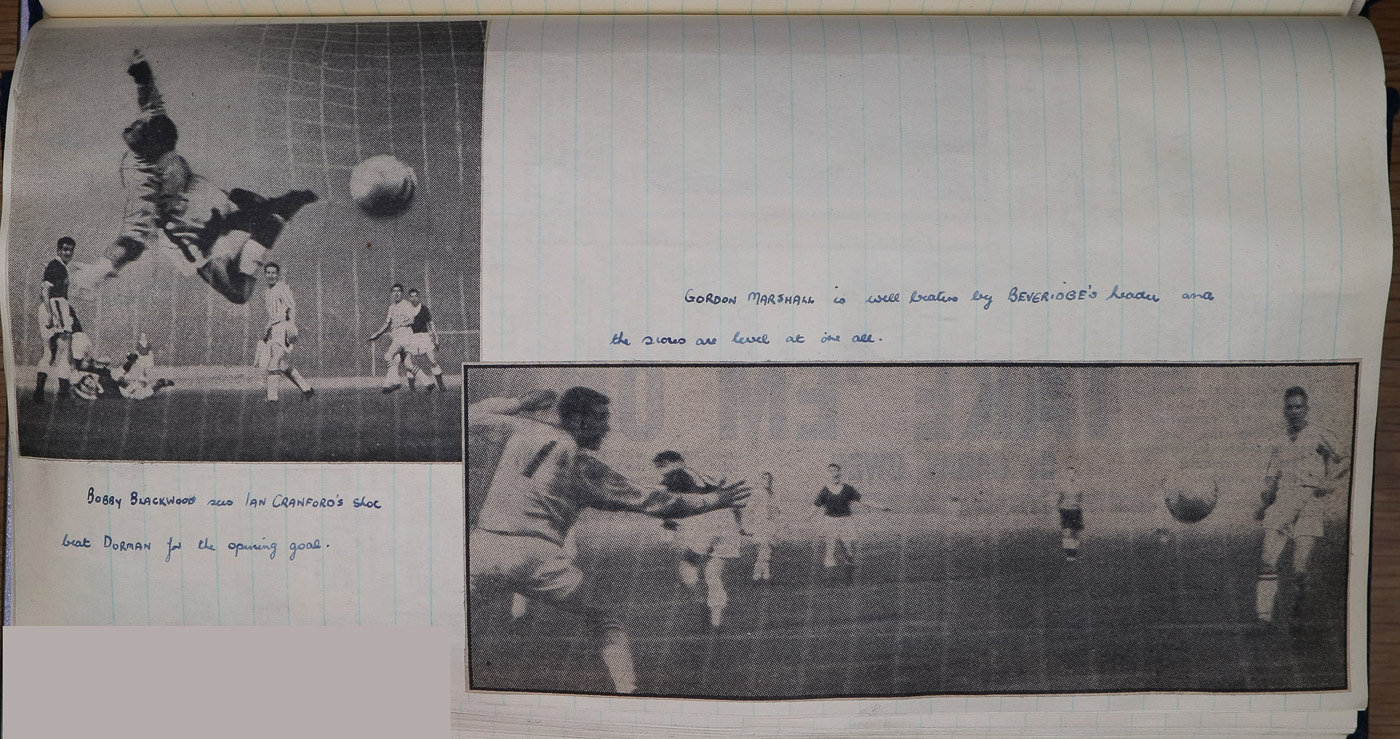 BOBBY BLACKWOOD sees IAN CRAWFORD'S shot
beat DORMAN for the opening goal.
GORDON MARSHALL is well beaten by BEVERIDGE'S header and
the scores are level at one all.